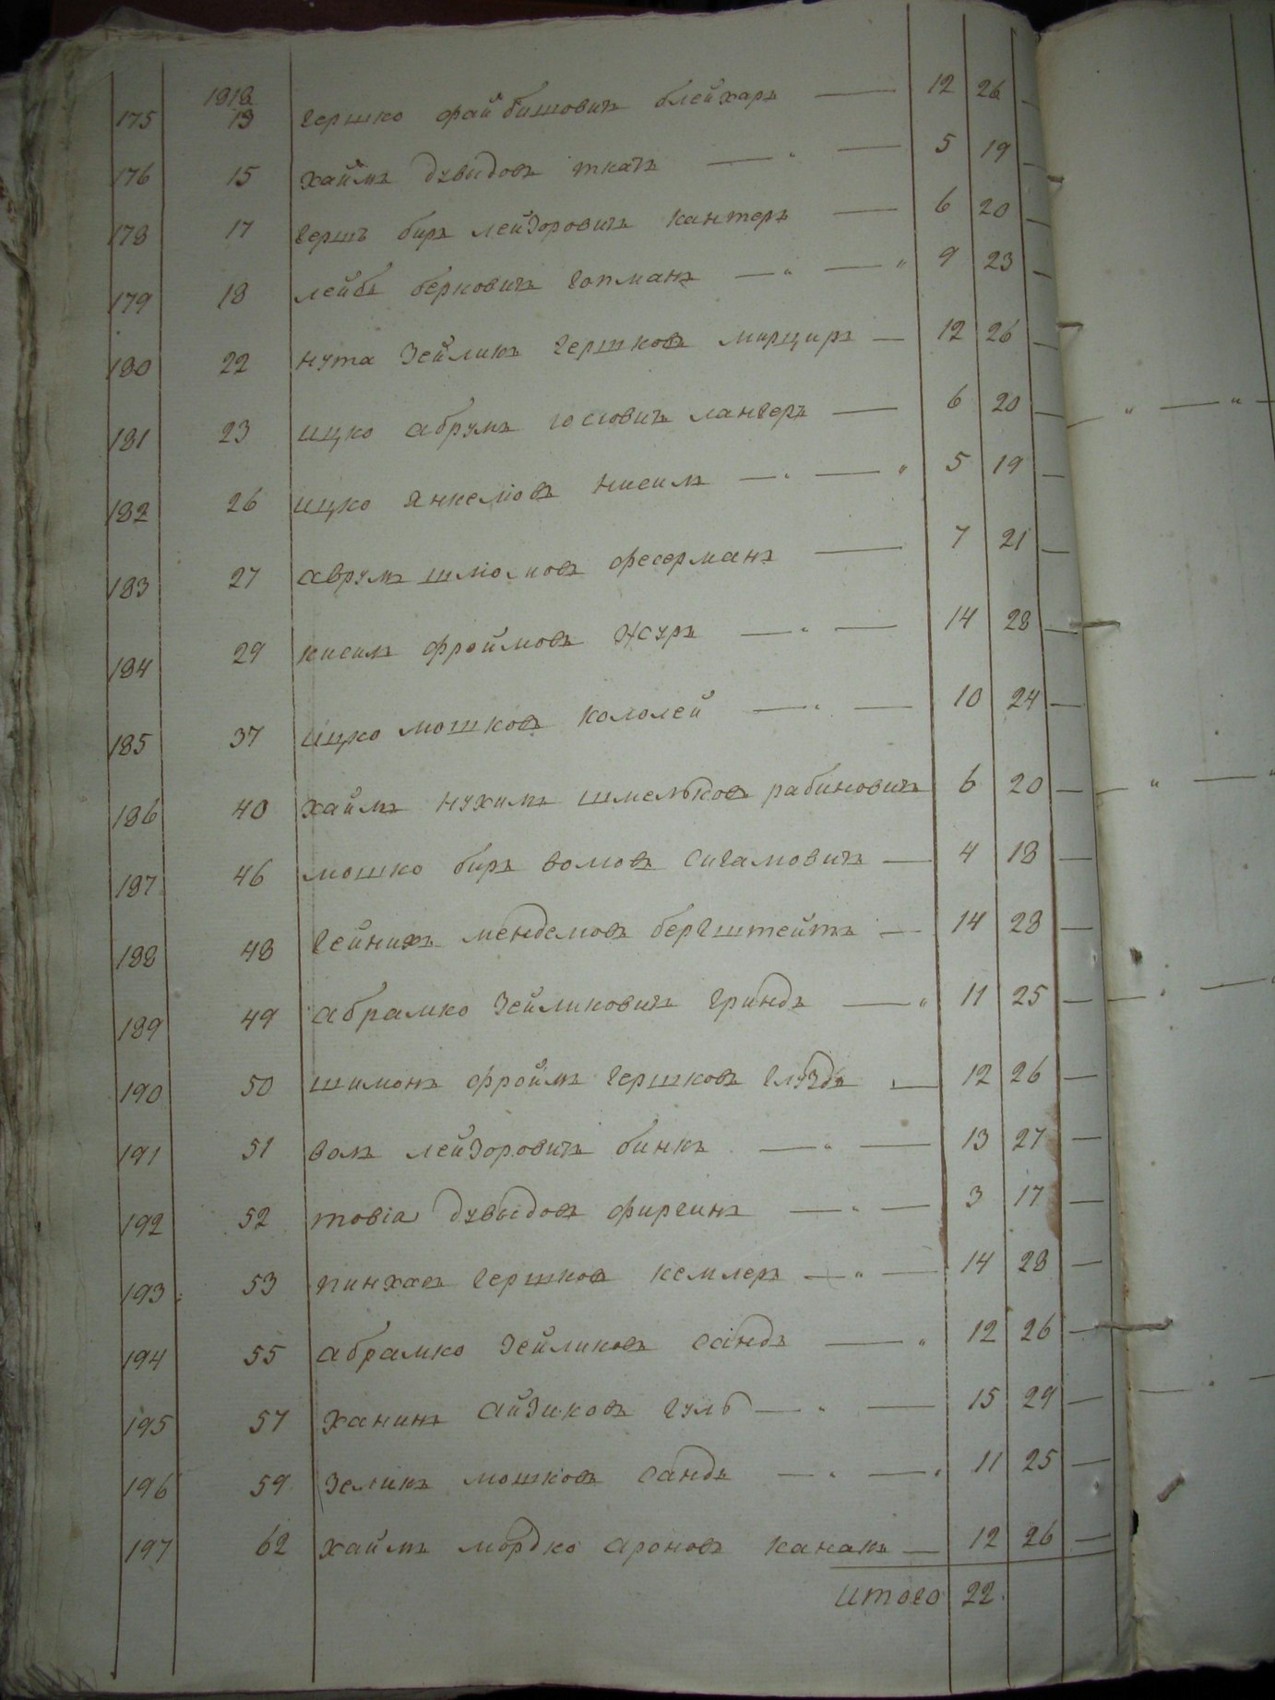 1818
175 13 Гершко Файбишовичъ Блейхаръ — 12 26 —
176 15 Хаймъ Дувидовъ Ткачъ — „ — 5 19 —
178 17 Гершъ Биръ Лейзоровичъ Кантеръ — 6 20 —
179 18 Лейбъ Берковичъ Гопманъ — „ — „ 9 23 —
180 22 Нута Зейликъ Гершковъ — 12 26 —
181 23 Ицко Абрумъ Іосіовичъ Лангеръ — 6 20 —
182 26 Ицко Янкеліовъ Нисимъ — „ — „ 5 19 —
183 27 Аврумъ Шліомовъ Фесерманъ — 7 21 —
184 29 Нисимъ Фроймовъ — „ — 14 28 —
185 37 Ицко Мошковъ — „ — 10 24 —
186 40 Хаймъ Нухимъ Шмельковъ Рабиновичъ 6 20 —
187 46 Мошко Биръ Волювъ Сигаловичъ — 4 18 —
188 48 Гейнихъ Менделювъ Бергштейнъ — 14 28 —
189 49 Абрамко Зейликовичъ Гриндъ — „ 11 25 —
190 50 Шимонъ Фроймъ Гершковъ — 12 26 —
191 51 Волъ Лейзоровичъ Бинкъ — „ — 13 27 —
192 52 Товіа Дувидовъ Фиргинъ — „ — 3 17 —
193 53 Пинхасъ Гершковъ Кемлеръ — „ — 14 28 —
194 55 Абрамко Зейликовъ Сандъ — „ 12 26 —
195 57 Ханинъ Айзиковъ Гуль — „ — 15 29 —
196 59 Зеликъ Мошковъ Сандъ — „ — „ 11 25 —
197 62 Хаймъ Мордко Ароновъ Канакъ — 12 26 —
Итого 22